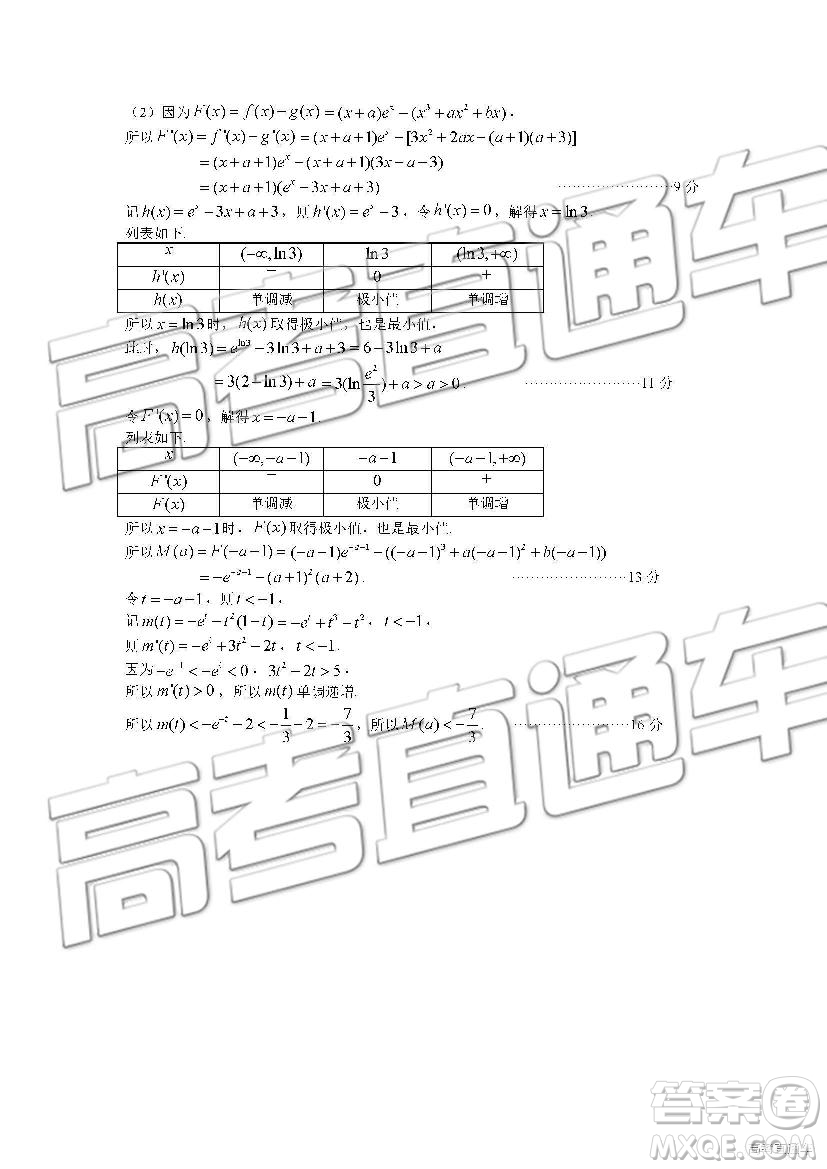 (2)因为F(x)=f(x)-g(x)=(x+a)e^x-(x^3+ax^2+bx),
所以F'(x)=f'(x)-g'(x)=(x+a+1)e^x-[3x^2+2ax-(a+1)(a+3)]
=(x+a+1)e^x-(x+a+1)(3x-a-3)
=(x+a+1)(e^x-3x+a+3) ························9 分
记h(x)=e^x-3x+a+3,则h'(x)=e^x-3,令h'(x)=0,解得x=ln3.
列表如下.
x (-∞,ln3) ln3 (ln3,+∞)
h'(x) − 0 +
h(x) 单调减 极小值 单调增
所以x=ln3时,h(x)取得极小值,也是最小值,
此时,h(ln3)=e^{ln3}-3ln3+a+3=6-3ln3+a
=3(2-ln3)+a=3(ln e^2/3)+a>a>0. ························11 分
令F'(x)=0,解得x=-a-1.
列表如下.
x (-∞,-a-1) -a-1 (-a-1,+∞)
F'(x) − 0 +
F(x) 单调减 极小值 单调增
所以x=-a-1时,F(x)取得极小值,也是最小值.
所以M(a)=F(-a-1)=(-a-1)e^{-a-1}-((-a-1)^3+a(-a-1)^2+b(-a-1))
=-e^{-a-1}-(a+1)^2(a+2). ························13 分
令t=-a-1,则t<-1,
记m(t)=-e^t-t^2(1-t)=-e^t+t^3-t^2,t<-1,
则m'(t)=-e^t+3t^2-2t,t<-1.
因为-e^{-1}<-e^t<0,3t^2-2t>5,
所以m'(t)>0,所以m(t)单调递增.
所以m(t)<-e^{-t}-2<-1/3-2=-7/3,所以M(a)<-7/3. ························16 分
高考直通车
高考直通车
答案卷
MXQE.COM
高考直通车